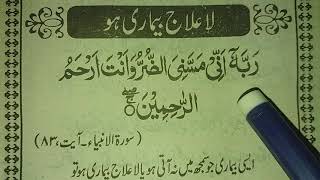 لا علاج بیماری ہو
رَبَّهٗۤ اَنِّیْ مَسَّنِیَ الضُّرُّ وَاَنْتَ اَرْحَمُ
الرّٰحِمِیْنَ
(سورۃ الانبیاء - آیت، ۸۳)
ایسی بیماری جو سمجھ میں نہ آتی ہو یا لا علاج بیماری ہو تو